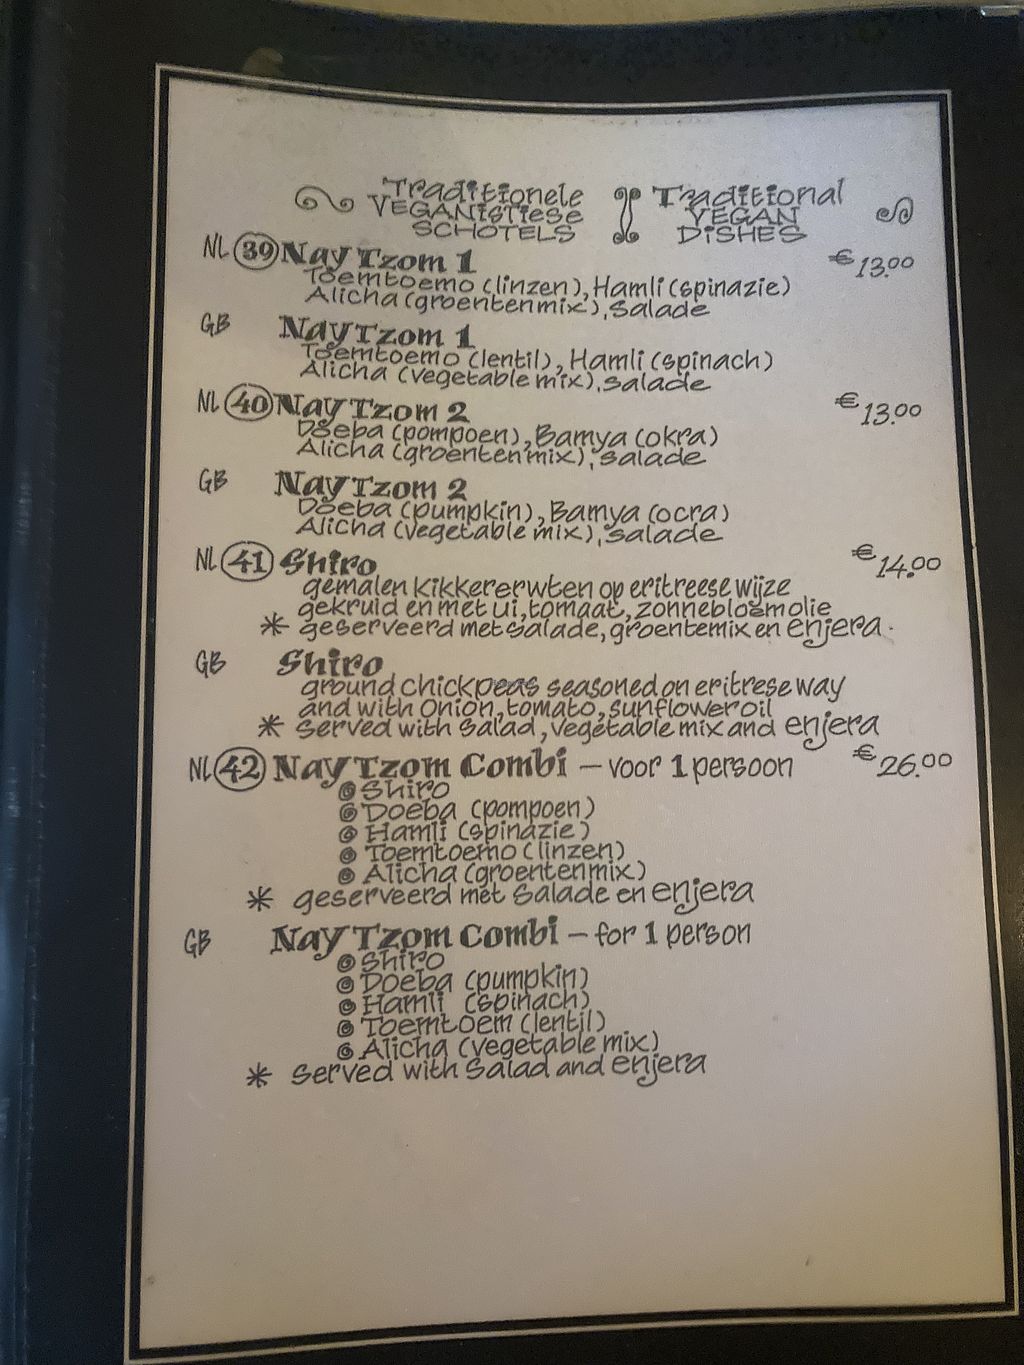 Traditionele Traditional
VEGANistiese VEGAN
SCHOTELS DiSHES
NL 39 Nay Tzom 1 € 13.00
Toemtoemo (linzen), Hamli (spinazie)
Alicha (groentenmix), Salade
GB Nay Tzom 1
Toemtoemo (lentil), Hamli (spinach)
Alicha (vegetable mix), Salade
NL 40 Nay Tzom 2 € 13.00
Doeba (pompoen), Bamya (okra)
Alicha (groentenmix), Salade
GB Nay Tzom 2
Doeba (pumpkin), Bamya (ocra)
Alicha (vegetable mix), Salade
NL 41 Shiro € 14.00
gemalen kikkererwten op eritreese wijze
gekruid en met ui, tomaat, zonnebloemolie
* geserveerd met Salade, groentemix en enjera.
GB Shiro
ground chickpeas seasoned on eritrese way
and with Onion, tomato, sunflower oil
* served with Salad, vegetable mix and enjera
NL 42 Nay Tzom Combi – voor 1 persoon € 26.00
Shiro
Doeba (pompoen)
Hamli (spinazie)
Toemtoemo (linzen)
Alicha (groentenmix)
* geserveerd met Salade en enjera
GB Nay Tzom Combi – for 1 person
Shiro
Doeba (pumpkin)
Hamli (spinach)
Toemtoem (lentil)
Alicha (vegetable mix)
* served with Salad and enjera